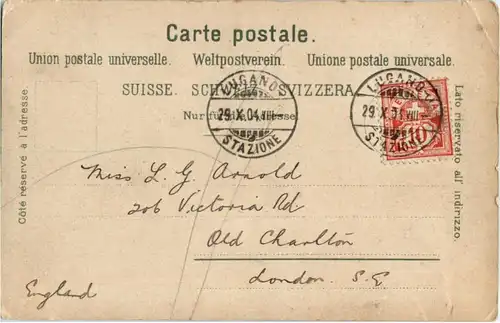 Carte postale.
Union postale universelle. Weltpostverein. Unione postale universale.
SUISSE. SCHWEIZ. SVIZZERA.
Nur für die Adresse.
LUGANO
29.X.04.VIII
STAZIONE
LUGANO
29.X.04.VIII
STAZIONE
10
Côté réservé à l'adresse.
Lato riservato all' indirizzo.
Miss L. G. Arnold
206 Victoria Rd
Old Charlton
London. S.E
England